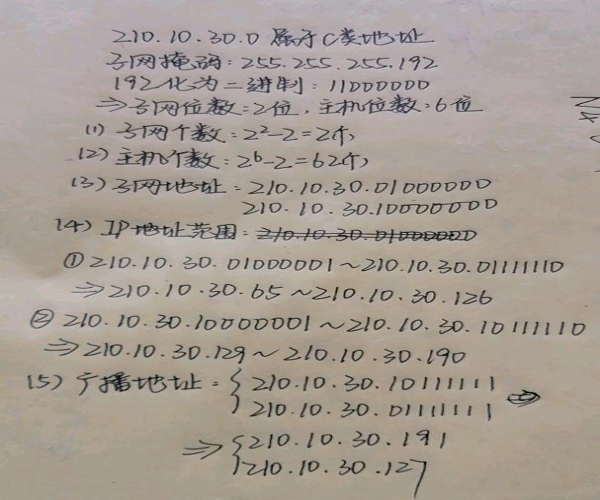 210.10.30.0 属于C类地址
子网掩码：255.255.255.192
192化为二进制：11000000
⇒子网位数：2位，主机位数：6位
(1) 子网个数：2²-2=2个
(2) 主机个数：2⁶-2=62个
(3) 子网地址：210.10.30.01000000
210.10.30.10000000
(4) IP地址范围：210.10.30.01000000
①210.10.30.01000001~210.10.30.01111110
⇒210.10.30.65~210.10.30.126
②210.10.30.10000001~210.10.30.10111110
⇒210.10.30.129~210.10.30.190
(5) 广播地址：{210.10.30.10111111
210.10.30.01111111
⇒{210.10.30.191
210.10.30.127